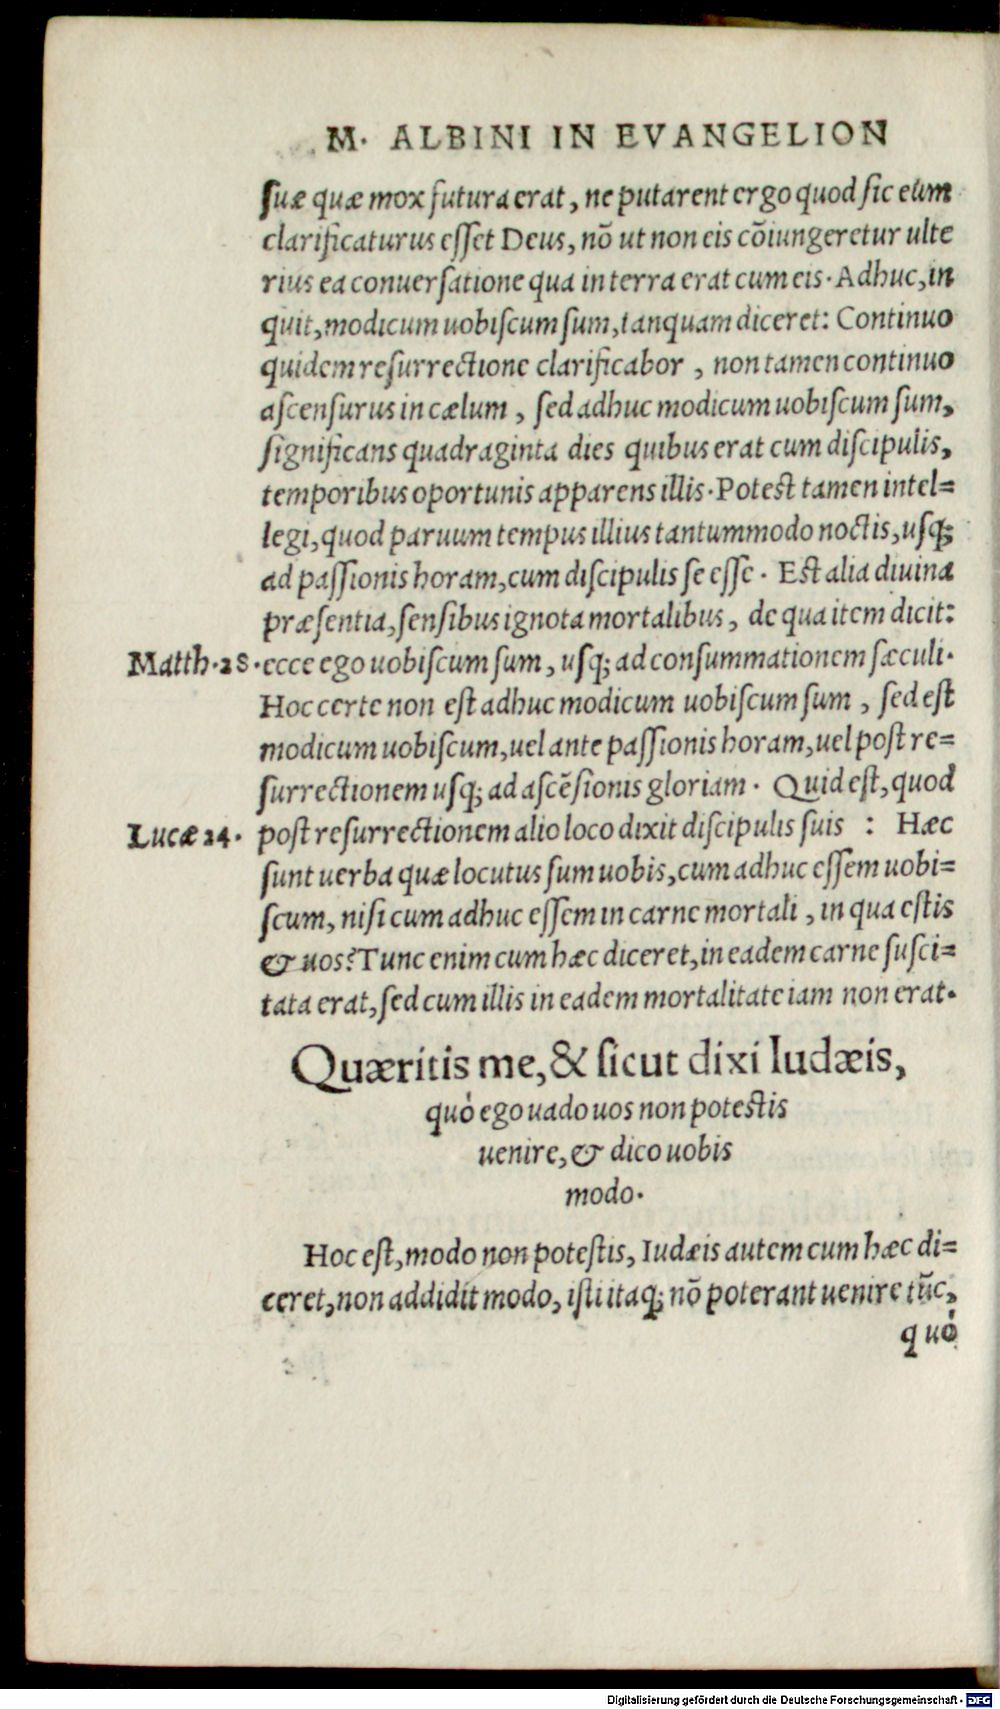 M. ALBINI IN EVANGELION
suæ quæ mox futura erat, ne putarent ergo quod sic eum
clarificaturus esset Deus, nō ut non eis cōiungeretur ulte
rius ea conuersatione qua in terra erat cum eis. Adhuc, in
quit, modicum uobiscum sum, tanquam diceret: Continuo
quidem resurrectione clarificabor, non tamen continuo
ascensurus in cælum, sed adhuc modicum uobiscum sum,
significans quadraginta dies quibus erat cum discipulis,
temporibus oportunis apparens illis. Potest tamen intel=
legi, quod paruum tempus illius tantummodo noctis, usq;
ad passionis horam, cum discipulis se esse. Est alia diuina
præsentia, sensibus ignota mortalibus, de qua item dicit:
Matth. 28. ecce ego uobiscum sum, usq; ad consummationem sæculi.
Hoc certe non est adhuc modicum uobiscum sum, sed est
modicum uobiscum, uel ante passionis horam, uel post re=
surrectionem usq; ad ascēsionis gloriam. Quid est, quod
Lucæ 24. post resurrectionem alio loco dixit discipulis suis : Hæc
sunt uerba quæ locutus sum uobis, cum adhuc essem uobi=
scum, nisi cum adhuc essem in carne mortali, in qua estis
& uos? Tunc enim cum hæc diceret, in eadem carne susci=
tata erat, sed cum illis in eadem mortalitate iam non erat.
Quæritis me, & sicut dixi Iudæis,
quò ego uado uos non potestis
uenire, & dico uobis
modo.
Hoc est, modo non potestis, Iudæis autem cum hæc di=
ceret, non addidit modo, isti itaq; nō poterant uenire tūc,
quò
Digitalisierung gefördert durch die Deutsche Forschungsgemeinschaft - DFG